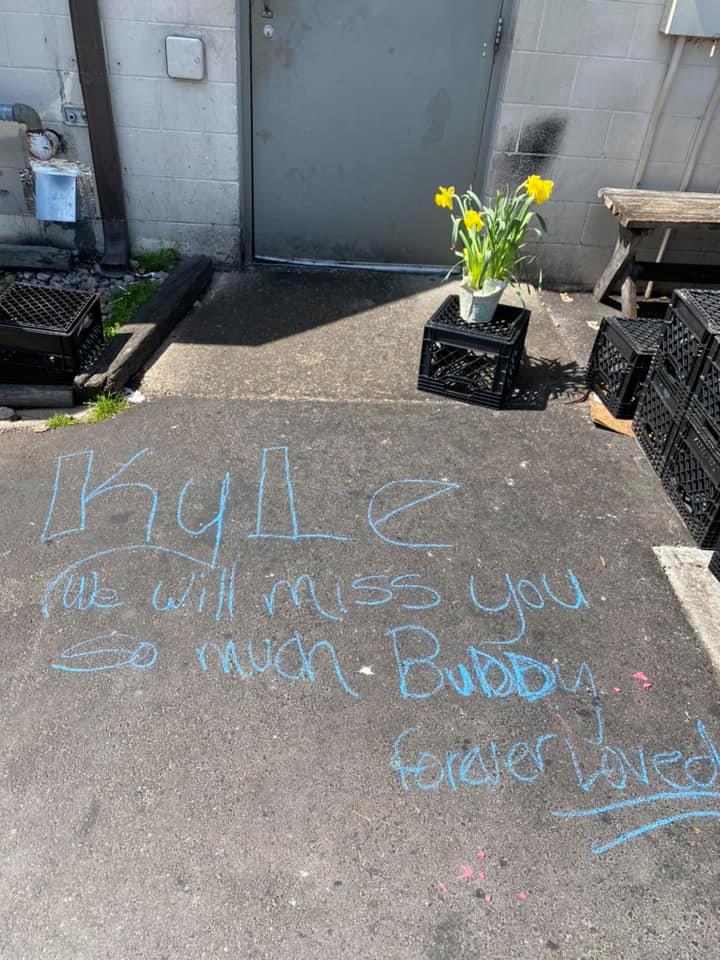 Kyle
We will miss you
so much Buddy
forever Loved